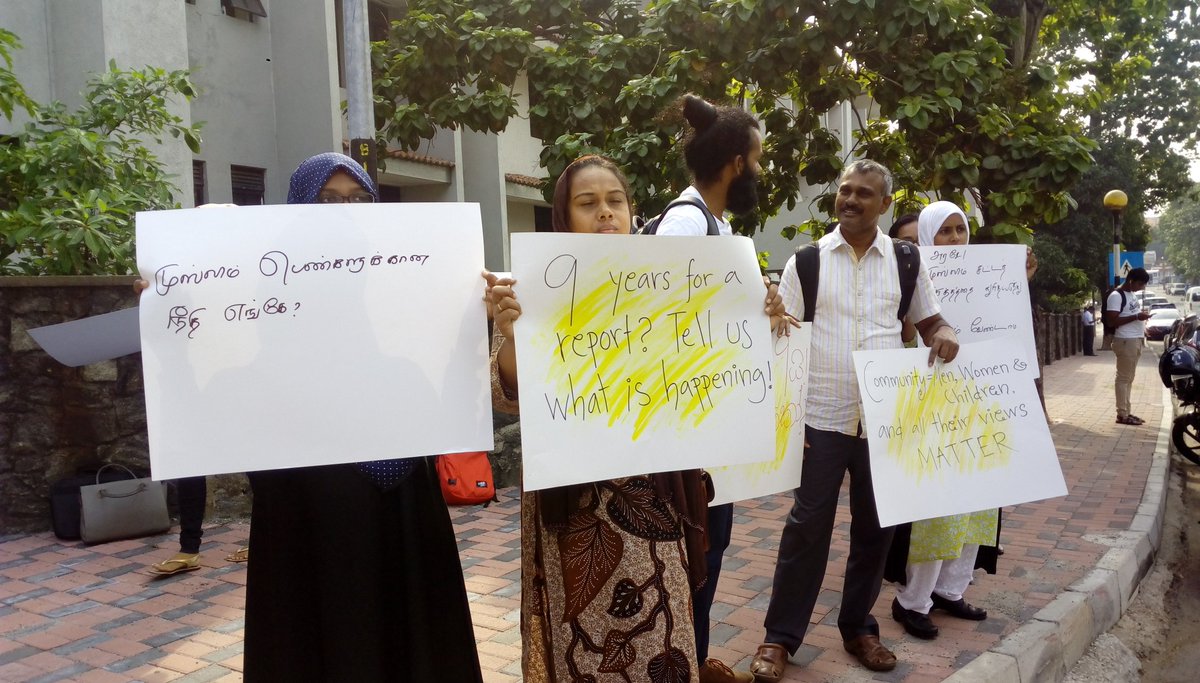 முஸ்லிம் பெண்களுக்கான
நீதி எங்கே?
9 years for a
report? Tell us
what is happening!
Community = Men, Women &
Children.
and all their views
MATTER
அரசே!
முஸ்லிம்
வேண்டாம்